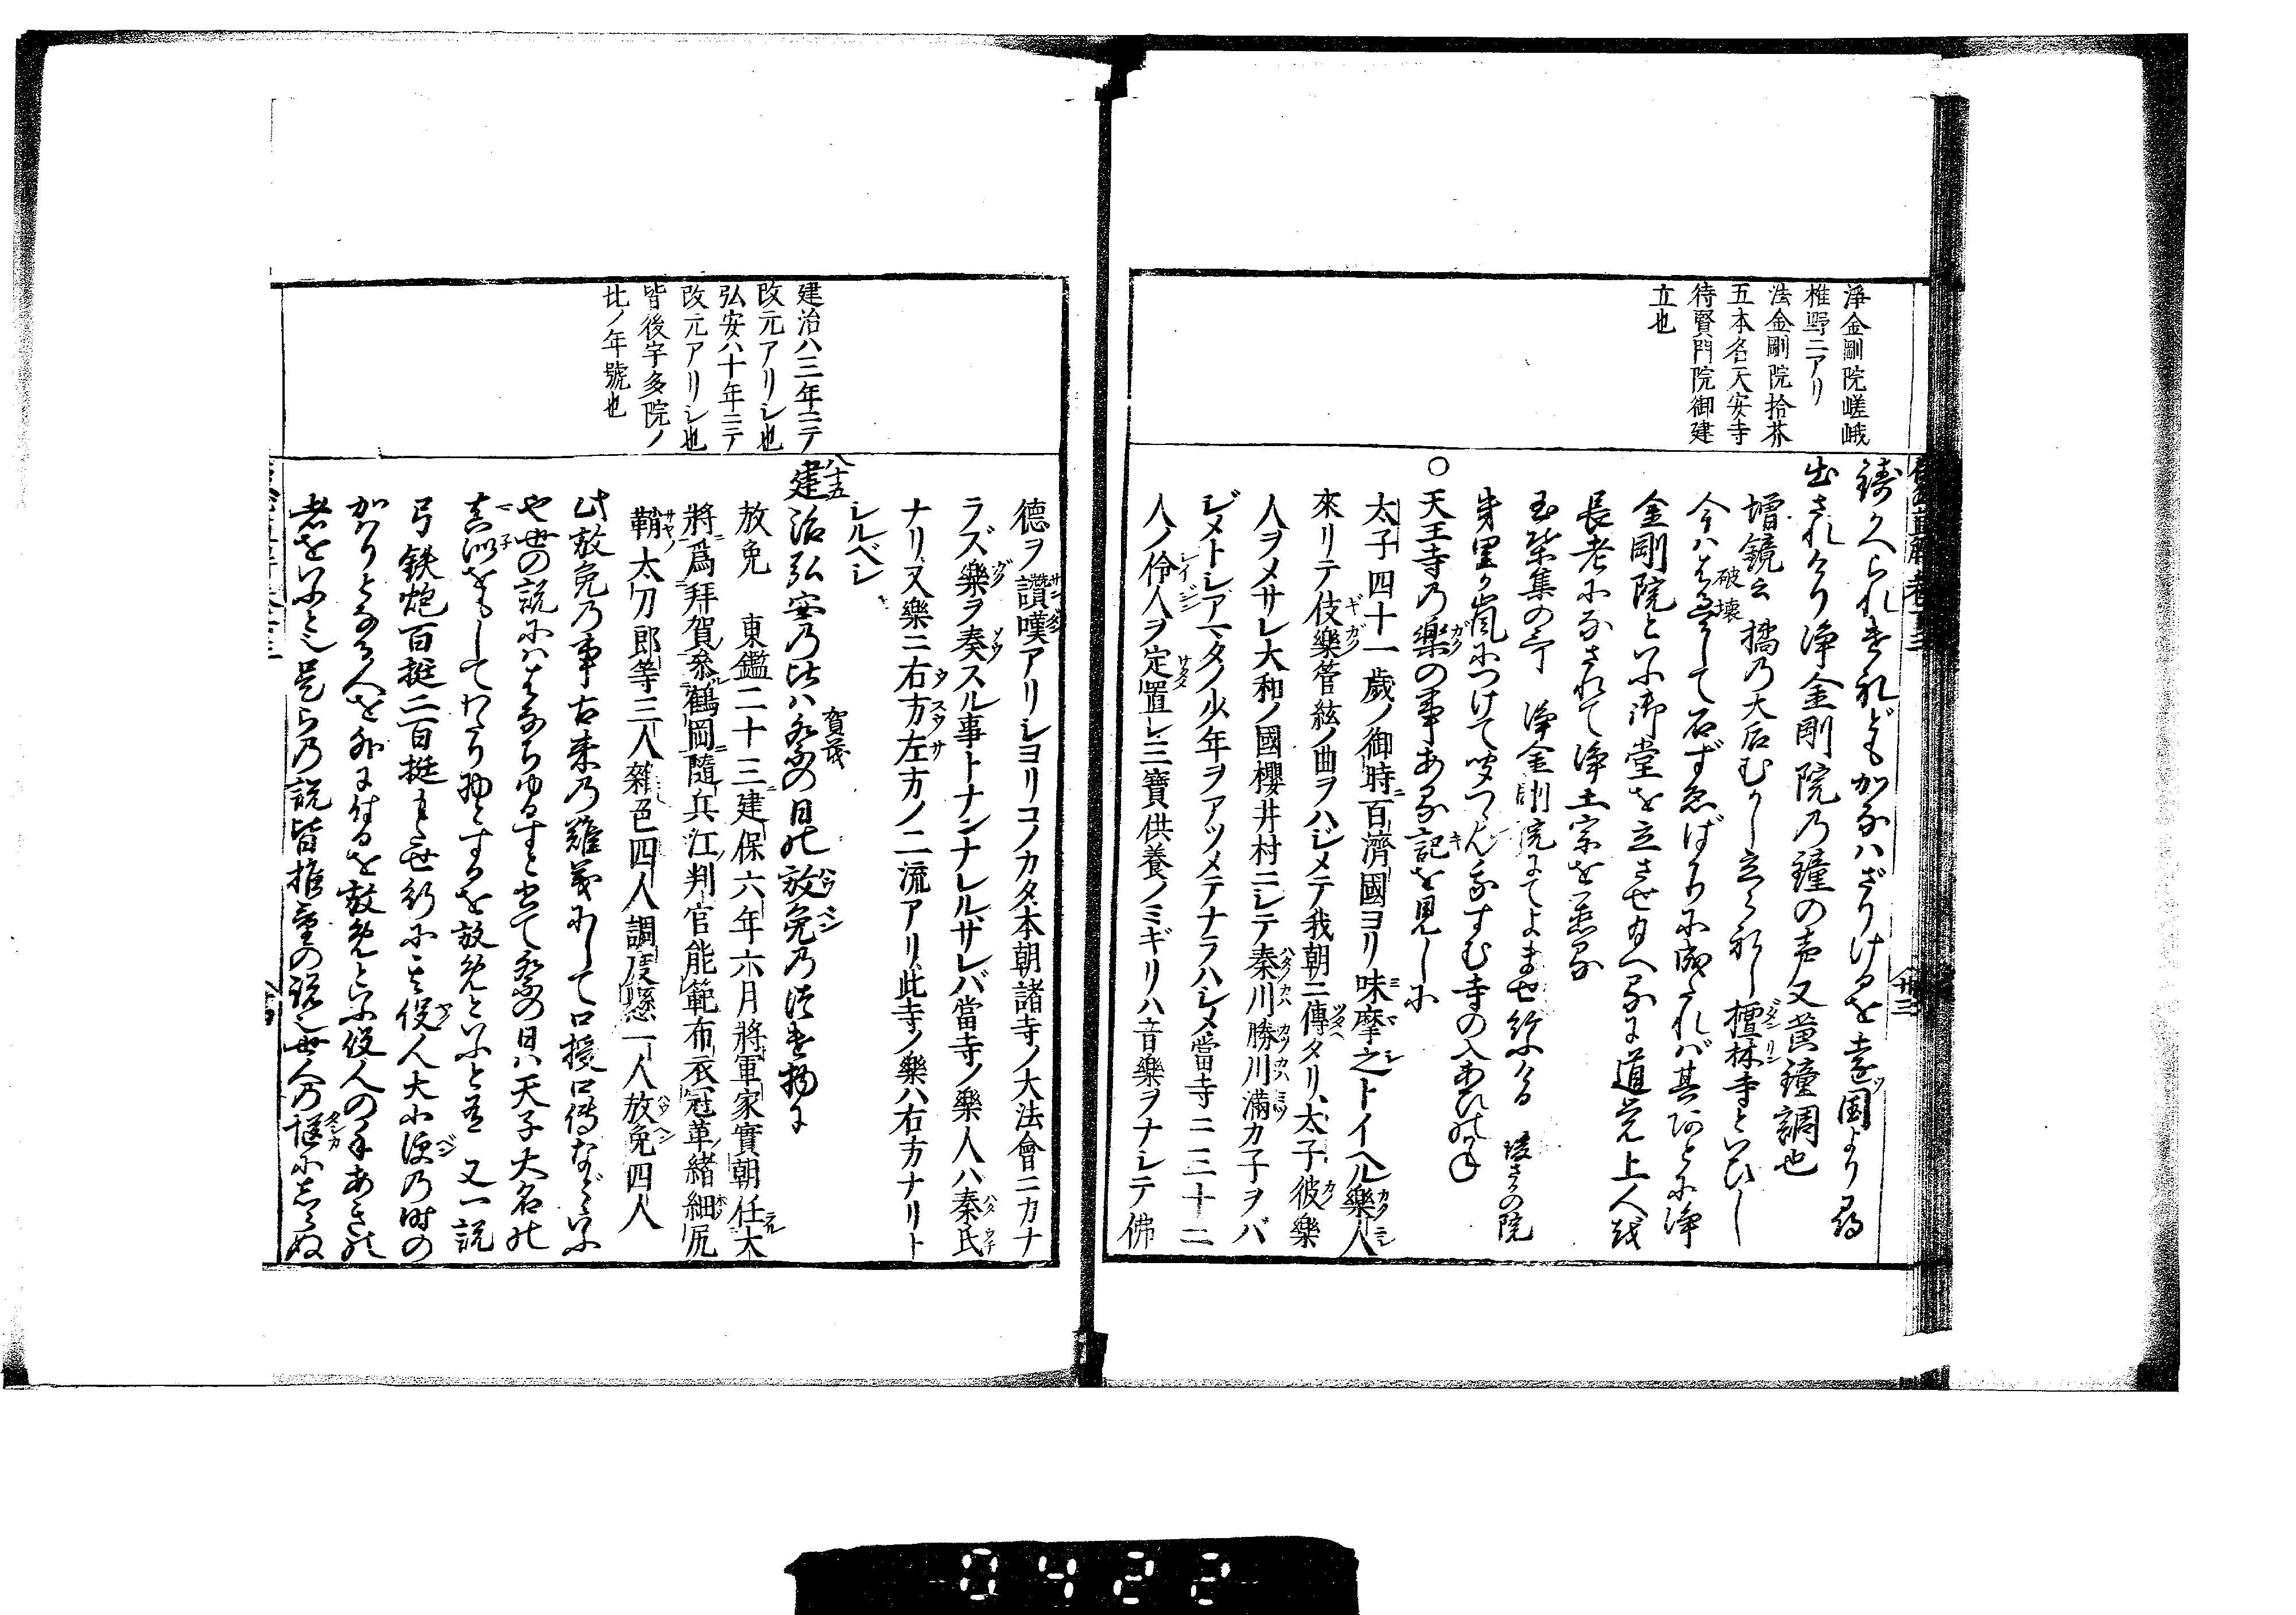 淨金剛院嵯峨
椎野ニアリ
法金剛院拾芥
五本名天安寺
待賢門院御建
立也
鋳かへられけれどもかなハざりけるを遠国より尋
出されけり浄金剛院乃鐘の声又黄鐘調也
増鏡云橘乃大后むかし立られし檀林寺といひし
今ハはゑして石ずゑばかりに成たれバ其跡とに浄
破壊
金剛院といふ御堂を立させ給へるに道覚上人を
長老になされて浄土宗を
玉葉集の哥 浄金剛院にてよませ給ふける 後さがの院
身里の嵐につけて すむ寺の入あひのかね
○天王寺乃樂の事ある記を見しに
太子四十一歳ノ御時百濟國ヨリ味摩之トイヘル樂人
來リテ伎樂管絃ノ曲ヲハジメテ我朝ニ傳タリ太子彼樂
人ヲメサレ大和ノ國櫻井村ニシテ秦川勝川滿カ子ヲバ
ジメトシアマタノ少年ヲアツメテナラハシメ當寺ニ三十二
人ノ伶人ヲ定置レ三寶供養ノミギリハ音樂ヲナシテ佛
建治ハ三年ニテ
改元アリシ也
弘安ハ十年ニテ
改元アリシ也
皆後宇多院ノ
比ノ年號也
德ヲ讃嘆アリシヨリコノカタ本朝諸寺ノ大法會ニカナ
ラズ樂ヲ奏スル事トナンナレルサレバ當寺ノ樂人ハ秦氏
ナリ又樂ニ右方左方ノ二流アリ此寺ノ樂ハ右方ナリト
シルベシ
建治弘安乃比ハ祭の日の放免乃つけ物に
賀茂
放免 東鑑二十三建保六年六月將軍家實朝任大
將爲拜賀參鶴岡隨兵江判官能範布衣冠革緒細尻
鞘太刀郎等三人雜色四人調度懸一人放免四人
此放免乃事古来乃難義にして口授口傳などいふ
や世の説にハはなちゆるすと出て祭の日ハ天子大名の
真似をもしてわたり物とするを放免といふと有又一説
弓鉄炮百挺二百挺もたせ行に其役人大小便乃時の
かハりとなる人を外に付るを放免と云役人の手あきの
者をいふと也是らの説皆推量の説也世人乃慥にしらぬ